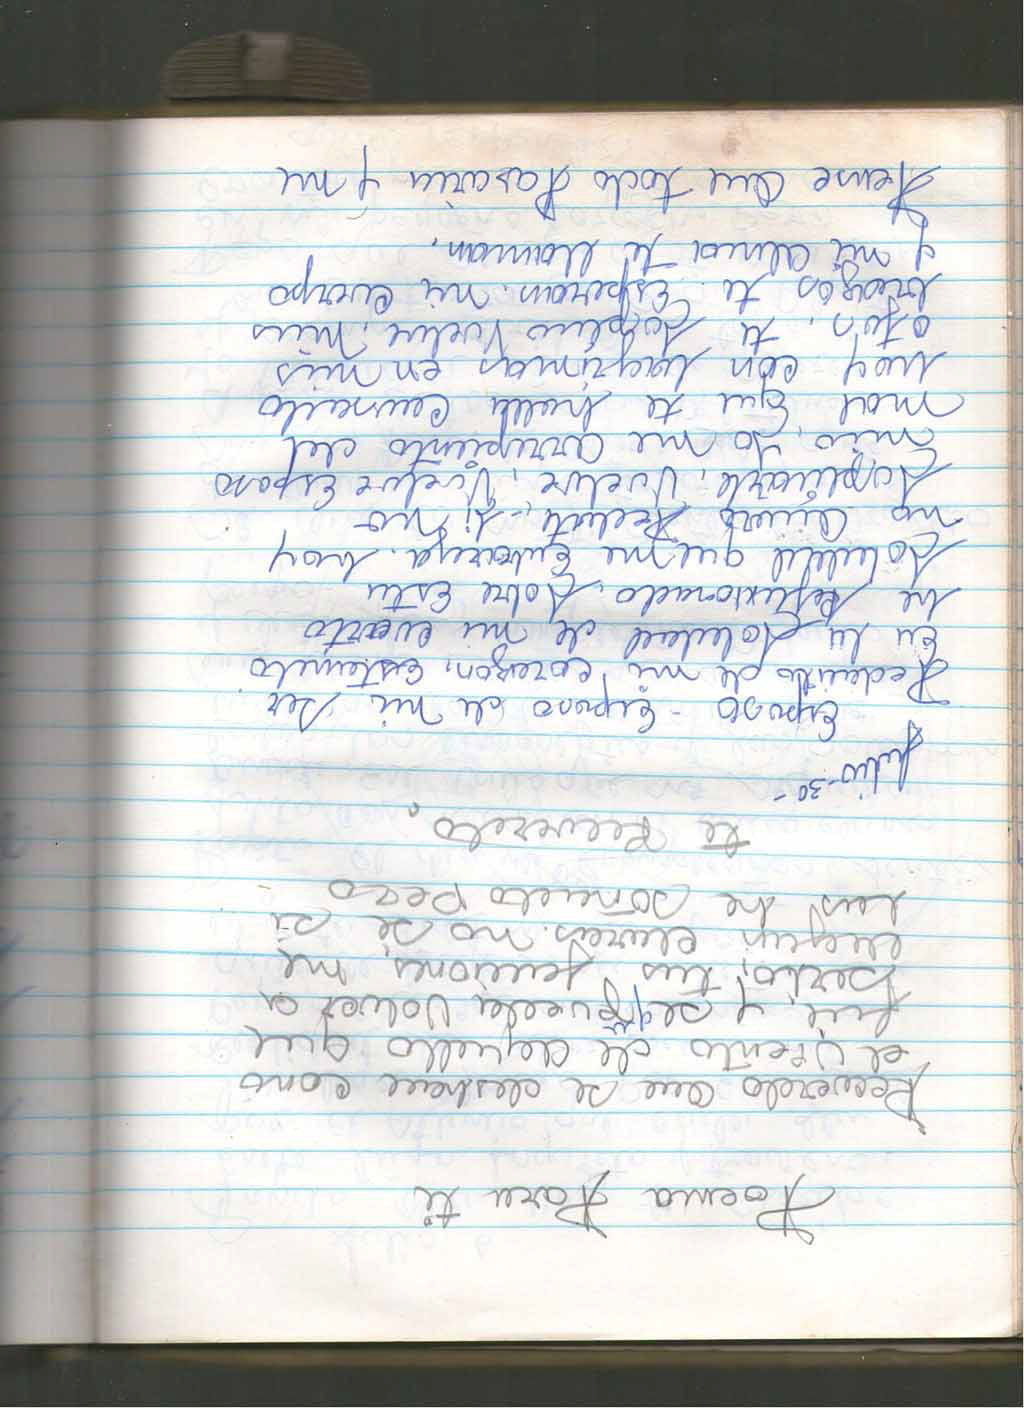 Poema Para ti
Recuerdo que se deshace como
el viento de aquello que
fue, y se que puedo volver a
serlo, tus facciones, me
elegun no se si
las he soñado pero
te Recuerdo.
Julio-30-
Esposo - Esposo de mi ser
Pedacito de mi corazon, Estando
En la Soledad de mi cuarto
he Reflexionado, sobre Esta
Soledad que me Embarga. hoy
no quiero Pedirte, si no
Suplicarte, Vuelve, Vuelve Esposo
mio, yo me arrepiento del
mal que te halla Causado
hoy con lagrimas en mis
ojos, te Suplico Vuelve, mis
brazos te Esperan, mi cuerpo
y mi alma te llaman.
Pense que todo Pasaria y me